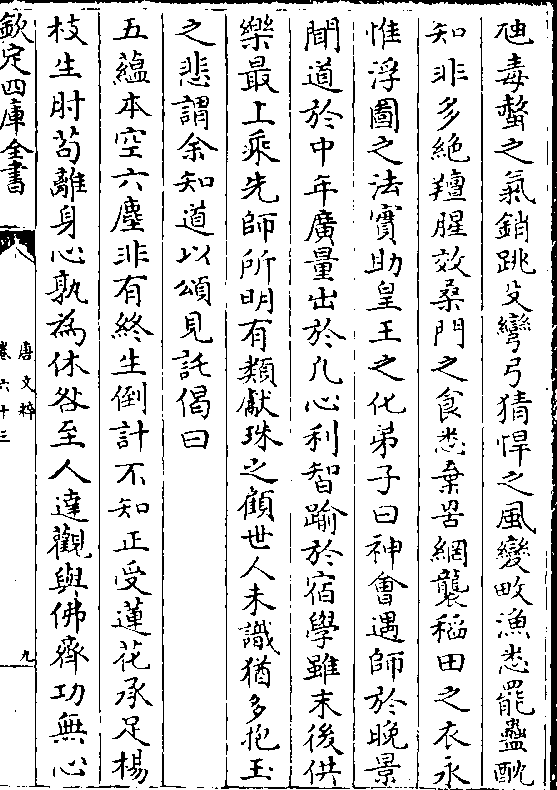 虺毒螫之氣銷跳殳彎弓猜悍之風變畋漁悉罷蠱酖
知非多絶羶腥效桑門之食悉棄罟網襲稻田之衣永
惟浮圖之法實助皇王之化弟子曰神會遇師於晚景
聞道於中年廣量出於凡心利智踰於宿學雖末後供
樂最上乘先師所明有類獻珠之顧世人未識猶多抱玉
之悲謂余知道以頌見託偈曰
五蘊本空六塵非有終生倒計不知正受蓮花承足楊
枝生肘苟離身心孰為休咎至人達觀與佛齊功無心
欽定四庫全書
唐文粹
卷六十三
九